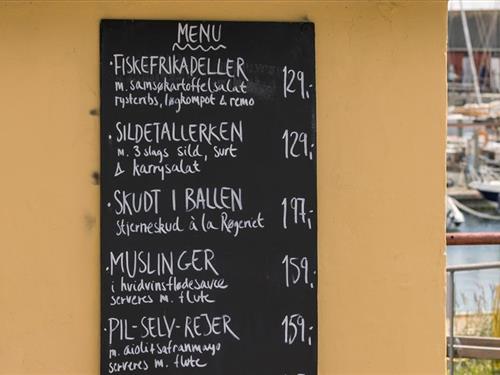 MENU
·FISKEFRIKADELLER 129,-
m. samsøkartoffelsalat
rysteribs, løgkompot & remo
·SILDETALLERKEN 129,-
m. 3 slags sild, surt
& karrysalat
·SKUDT I BALLEN 197,-
Stjerneskud à la Røgeriet
·MUSLINGER 159,-
i hvidvinsflødesauce
serveres m. flute
·PIL-SELV-REJER 159,-
m. aioli & safranmayo
serveres m. flute